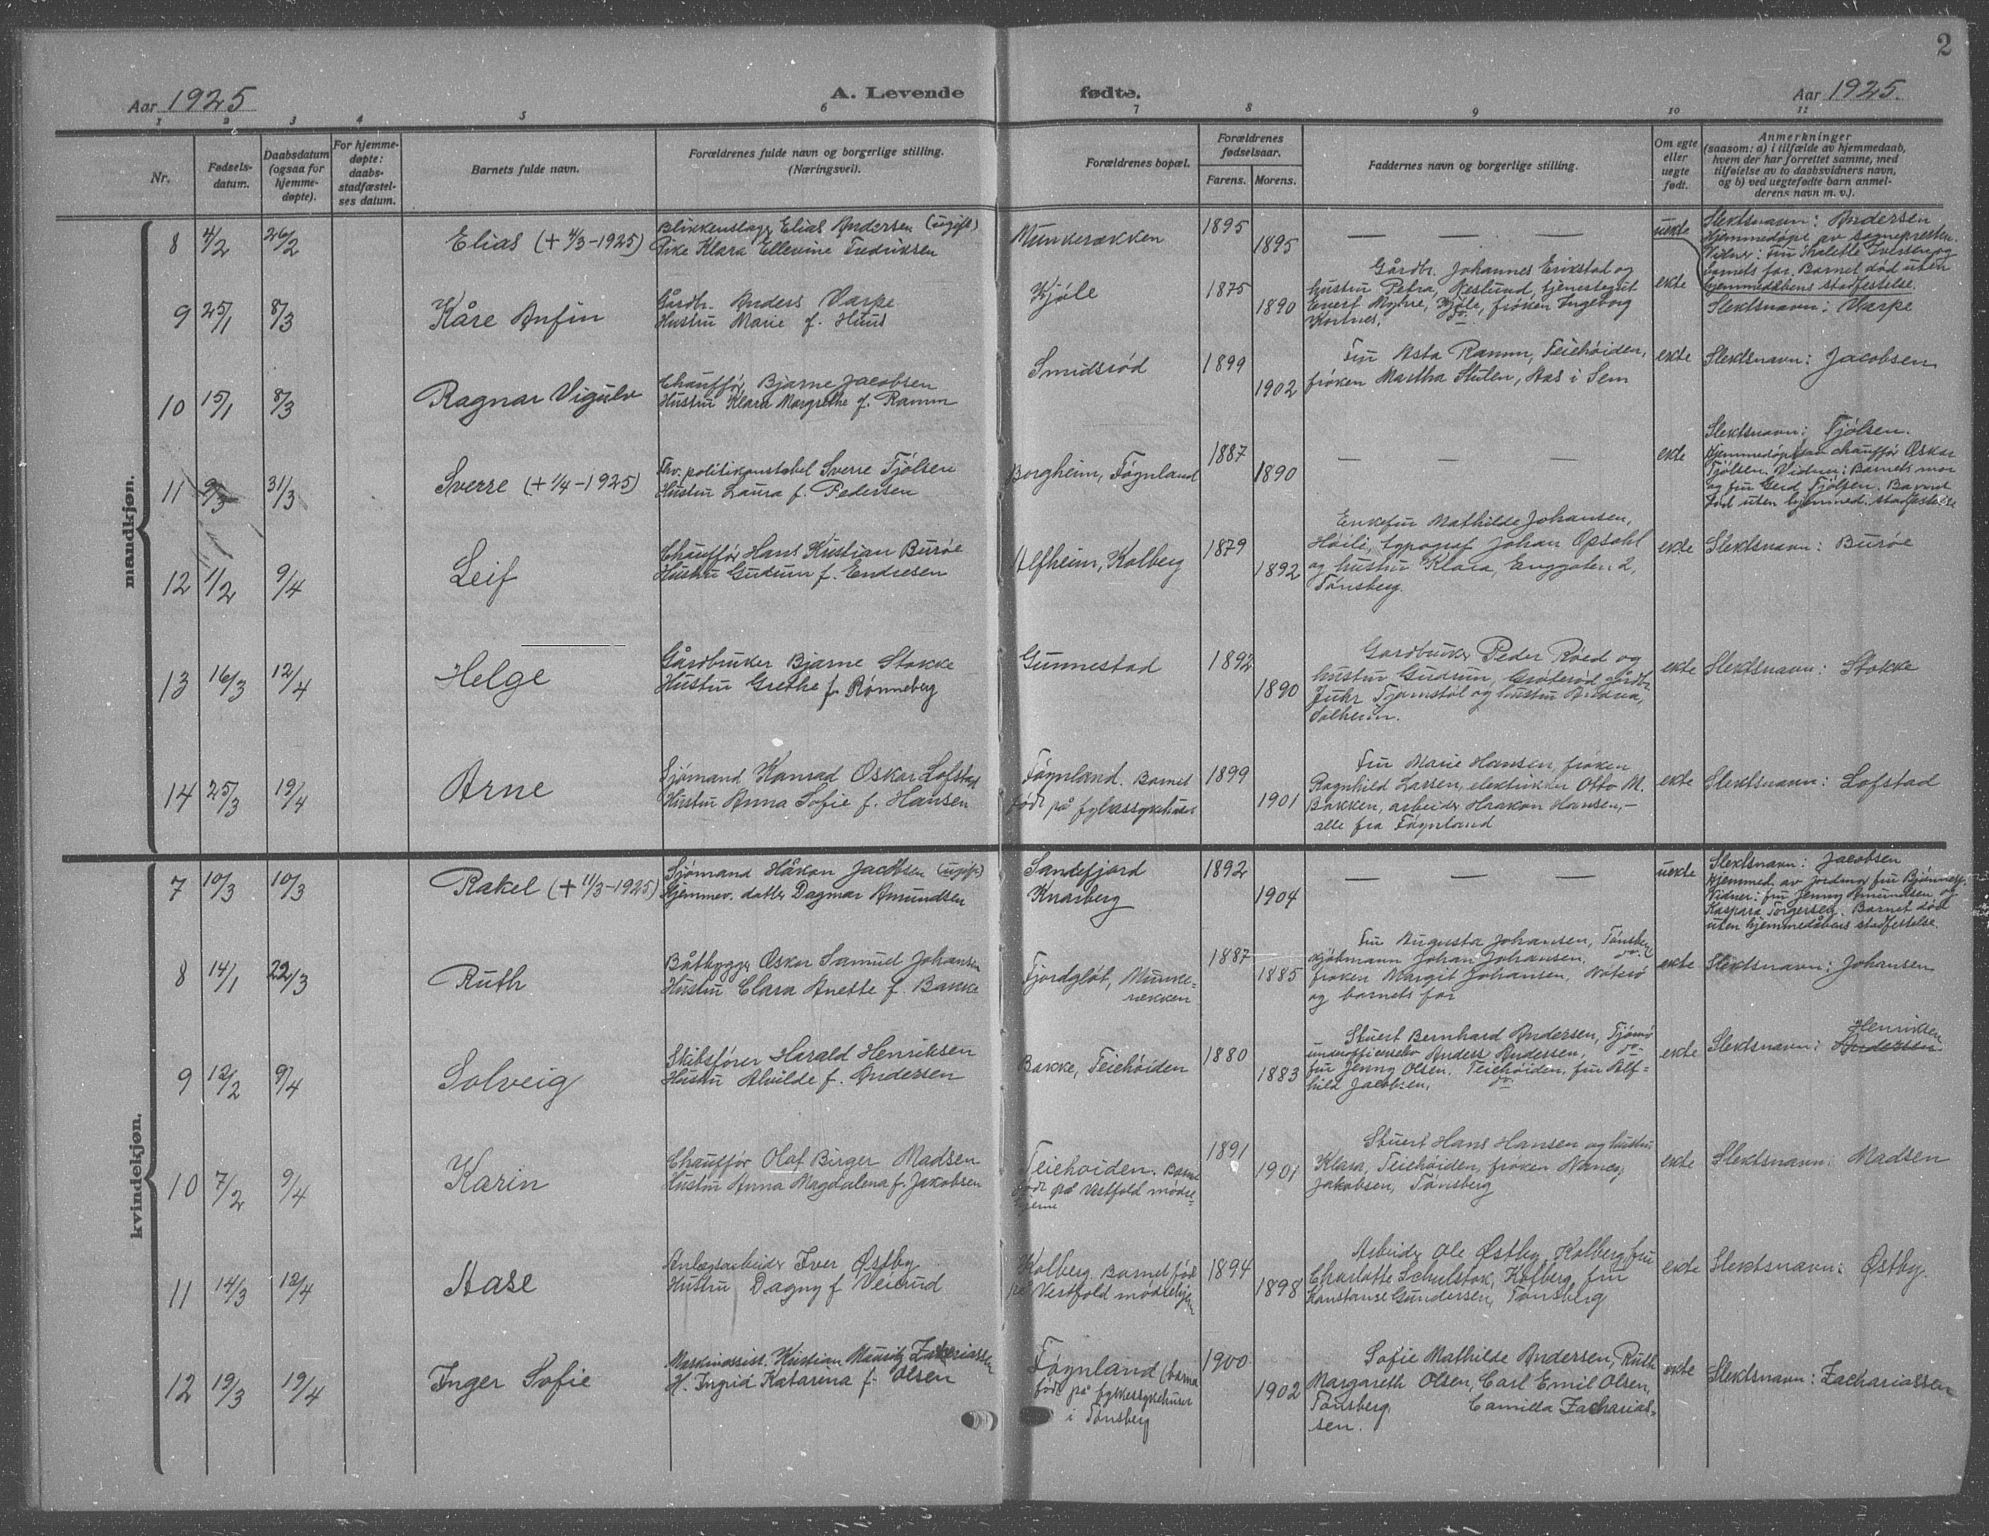 2
Aar 1925
A. Levende fødte.
Aar 1925.
1 2 3 4 5 6 7 8 9 10 11
Nr.
Fødsels-
datum.
Daabsdatum
(ogsaa for
hjemme-
døpte).
For hjemme-
døpte:
daabs-
stadfæstel-
ses datum.
Barnets fulde navn.
Forældrenes fulde navn og borgerlige stilling.
(Næringsvei).
Forældrenes bopæl.
Forældrenes
fødselsaar.
Farens. Morens.
Faddernes navn og borgerlige stilling.
Om egte
eller
uegte
født.
Anmerkninger
(saasom: a) i tilfælde av hjemmedaab,
hvem der har forrettet samme, med
tilføielse av to daabsvidners navn,
og b) ved uegtefødte barn anmel-
derens navn m. v.).
mandkjøn.
8 4/2 26/2 Elias (+ 4/3-1925)
Blikkenslager Elias Andersen (ugift)
Pike Klara Ellevine Fredriksen
Munkerekken
1895
1895
— — —
uekte
Slektsnavn: Andersen
Hjemmedøpt av sognepresten.
Vidner: Fru Iversen og
barnets far. Barnet død uten
hjemmedåbens stadfestelse.
9 25/1 8/3 Kåre Anfin
Gårdbr. Anders Varpe
Hustru Marie f. Huus
Kjøle
1875
1890
Gårdbr. Johannes Erikstad og
hustru Petra, tjenestegut
Evert Myhre, Kjøle, frøken Ingeborg
do
ekte
Slektsnavn: Varpe
10 15/1 8/3 Ragnar Vigulv
Chauffør Bjarne Jacobsen
Hustru Klara Margrethe f. Ramm
Smidsrød
1899
1902
Fru Asta Ramm, Teiehøiden,
frøken Martha Stulen, Aas i Sem
ekte
Slektsnavn: Jacobsen
11 9/3 31/3 Sverre (+ 1/4-1925)
Fhv. politikonstabel Sverre Tjølsen
Hustru Laura f. Pedersen
Borgheim, Føgnland
1887
1890
— — —
ekte
Slektsnavn: Tjølsen.
Hjemmedøpt av chauffør Oskar
Tjølsen. Vidner: Barnets mor
og fru Gerd Tjølsen. Barnet
død uten hjemmed. stadfestelse
12 1/2 9/4 Leif
Chauffør Hans Kristian Burøe
Hustru Gudrun f. Endresen
Alfheim, Kolberg
1879
1892
Enkefru Mathilde Johansen,
Høili, typograf Johan Opsahl
og hustru Klara, Enggaten 2,
Tønsberg.
ekte
Slektsnavn: Burøe
13 16/3 12/4 Helge
Gårdbruker Bjarne Stokke
Hustru Grethe f. Rønneberg
Gunnestad
1892
1890
Gardbruker Peder Roed og
hustru Gudrun, Grøterød, gårdbr.
og hustru
Solheim.
ekte
Slektsnavn: Stokke
14 25/3 19/4 Arne
Sjømand Konrad Oskar Lofstad
Hustru Anna Sofie f. Hansen
Føgnland. Barnet
født på fylkessykehuset
1899
1901
Fru Marie Hansen, frøken
Ragnhild Larsen, elektriker Otto M.
Bakken, arbeider Haakon Hansen, -
alle fra Føgnland
ekte
Slektsnavn: Lofstad
kvindekjøn.
7 10/3 10/3 Rakel (+ 11/3-1925)
Sjømand Håkon Jacobsen (ugift)
Hjemmev. datter Dagmar Amundsen
Sandefjord
Knarberg
1892
1904
— — —
uekte
Slektsnavn: Jacobsen
Hjemmed. av jordmor fru
Vidner: fru Jenny Amundsen og
Kaspara Torgersen. Barnet død
uten hjemmedåbens stadfestelse.
8 14/1 22/3 Ruth
Båtbygger Oskar Samuel Johansen
Hustru Clara Anette f. Bakke
Fjordgløt, Munke-
rekken
1887
1885
Fru Augusta Johansen, Tønsberg
kjøbmann Johan Johansen, do
frøken Margit Johansen, Nøterø
og barnets far
ekte
Slektsnavn: Johansen
9 12/2 9/4 Solveig
Skibsfører Harald Henriksen
Hustru Alvilde f. Andersen
Bakke, Teiehøiden
1880
1883
Stuert Bernhard Andersen, Tjømø
underofficer Anders Andersen, do
fru Jenny Olsen, Teiehøiden, fru Alf-
hild Jacobsen, do
ekte
Slektsnavn: Henriksen
Andersen
10 7/2 9/4 Karin
Chauffør Olaf Birger Madsen
Hustru Anna Magdalena f. Jakobsen
Teiehøiden. Barnet
født på Vestfold mødre-
hjem
1891
1901
Stuert Hans Hansen og hustru
Klara, Teiehøiden, frøken Nancy
Jakobsen, Tønsberg
ekte
Slektsnavn: Madsen
11 14/3 12/4 Aase
Anlægsarbeider Iver Østby
Hustru Dagny f. Veierud
Kolberg. Barnet født
på Vestfold mødrehjem
1894
1898
Arbeider Ole Østby, Kolberg, fru
Charlotte Schulstok, Kolberg, fru
Konstanse Gundersen, Tønsberg
ekte
Slektsnavn: Østby.
12 19/3 19/4 Inger Sofie
Maskinassist. Kristian Mauritz Zakariassen
H. Ingrid Katarina f. Olsen
Føgnland (barnet
født på fylkessykehuset
i Tønsberg
1900
1902
Sofie Mathilde Andersen, Ruth
Margareth Olsen, Carl Emil Olsen,
Tønsberg. Camilla Zacharias-
sen.
ekte
Slektsnavn: Zachariassen